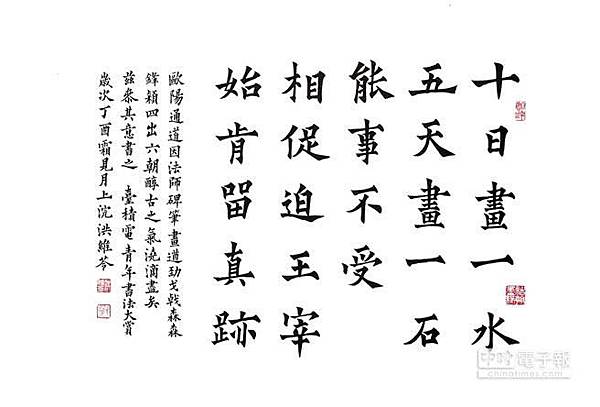 十日畫一水
五天畫一石
能事不受
相促迫王宰
始肯留真跡
歐陽通道因法師碑筆畫遒勁戈戟森森
鋒穎四出六朝醇古之氣澆漓盡矣
茲參其意書之 臺積電青年書法大賞
歲次丁酉霜見月上沈洪維芩
中時電子報
chinatimes.com